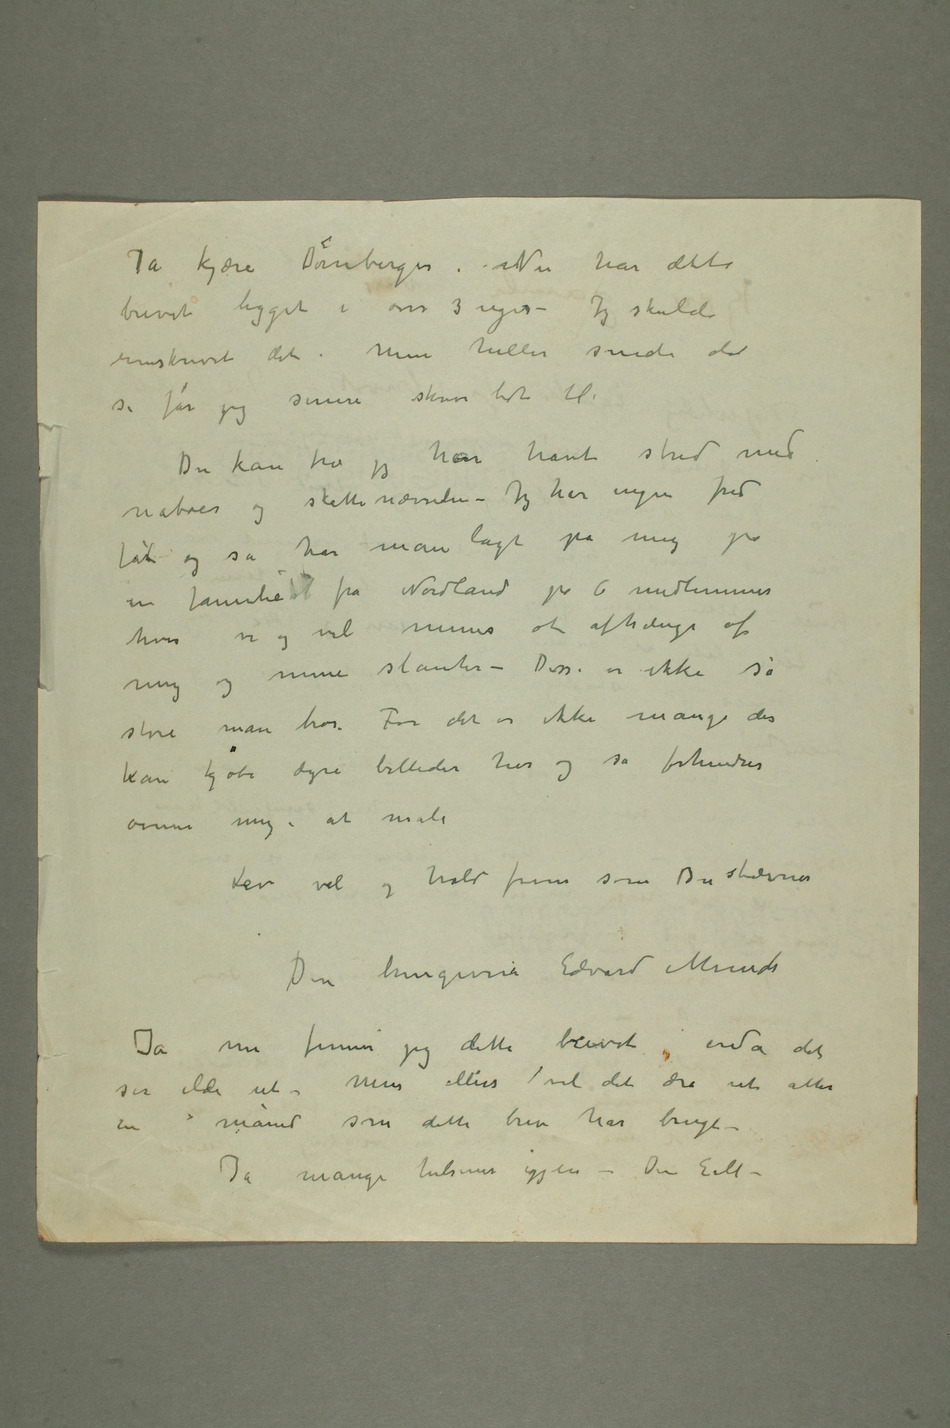 Ja kjære Dørnberger. – Nu har dette
brevet ligget i over 3 uger – Jg skulde
omskrevet det. Men heller sende det
så får jeg senere skrive lidt til.
Du kan tro jg har havt strid med
naboer og skattevæsen – Jg har ingen fred
fåt og så har man lagt på mig på
en familie fra Nordland på 6 medlemmer
hvor vi og vel menes at afhænge af
mig og mine slanter – Disse er ikke så
store man tror. For det er ikke mange der
kan kjøbe dyre billeder her og så forhindres
mig i at male
Lev vel og hold frem som Du stævner
Din hengivne Edvard Munch
Ja nu finner jeg dette brevet, enda det
ser ilde ut – Men ellers vil det dra ut atter
en måned som dette brev har brugt –
Ja mange hilsener igjen – Din E